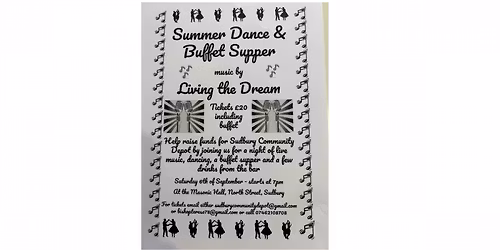 Summer Dance &
Buffet Supper
music by
Living the Dream
Tickets £20
including
buffet
Help raise funds for Sudbury Community
Depot by joining us for a night of live
music, dancing, a buffet supper and a few
drinks from the bar
Saturday of September - starts at 7pm
At the Masonic Hall, North Street, Sudbury
For tickets email either sudburycommunitydepot@gmail.com
or or call 07462108708